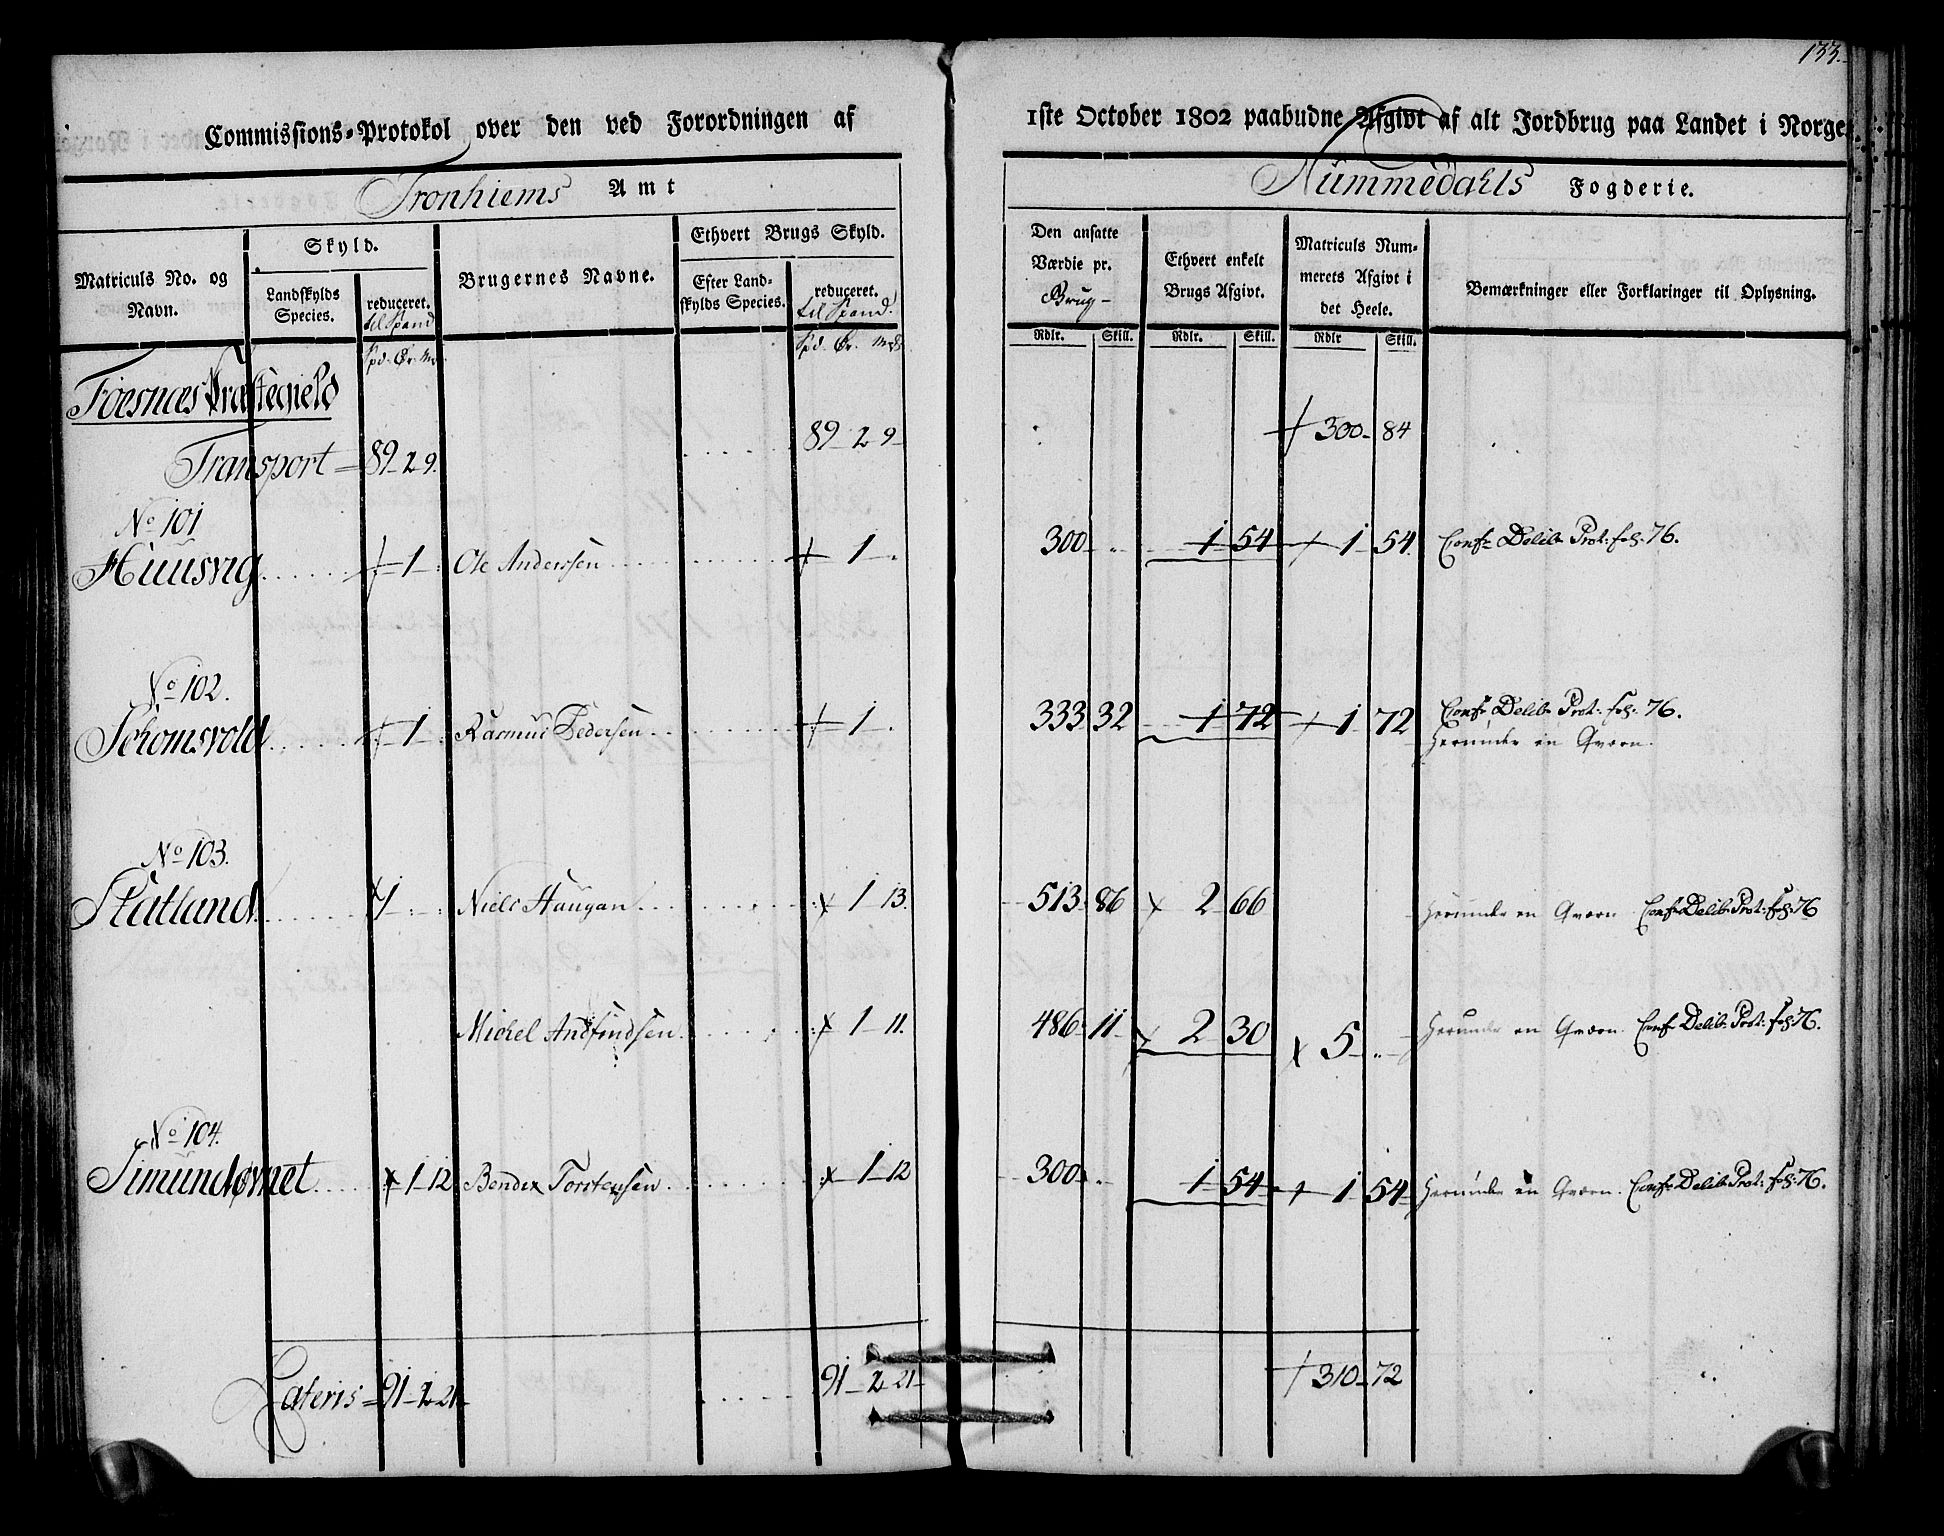 133.
Commissions-Protokol over den ved Forordningen af 1ste October 1802 paabudne Afgivt af alt Jordbrug paa Landet i Norge.
Tronhiems Amt Nummedahls Fogderie.
Matriculs No. og Navn. Skyld. Landskylds Species. reduceret. til Spand Brugernes Navne. Ethvert Brugs Skyld. Efter Landskylds Species. reduceret. til Spand. Den ansatte Værdie pr. Brug- Ethvert enkelt Brugs Afgivt. Matriculs Nummerets Afgivt i det Heele. Bemærkninger eller Forklaringer til Oplysning.
Spd. Ør. Mk. Spd. Ør. Mk. Rdlr. Skill. Rdlr. Skill. Rdlr Skill.
Foesnæs Præstegield
Transport = 89-2 9. 89-2 9- 300- 84
No 101
Huusvig 1 Ole Anderssen 1 300 1 54 1 54 Conf: Delib: Prot: fol: 76.
No 102.
Schomsvold 1 Rasmus Pedersen 1 333 32 1 72 1 72 Conf: Delib: Prot: fol: 76.
Herunder en Qværn.
No 103.
Statland 1 Niels Haugan 1 13. 513 86 2 66 Herunder en Qværn Conf: Delib: Prot: fol: 76
Michel Andfindsen 1 11. 486 11 2 30 5 Herunder en Qværn. Conf: Delib: Prot: fol: 76.
No 104.
1 12 Bendix Torstensen 1 12 300 1 54 1 54 Herunder en Qværn. Conf: Delib: Prot: fol: 76.
Lateris = 91-2-21 91-2-21 310-72